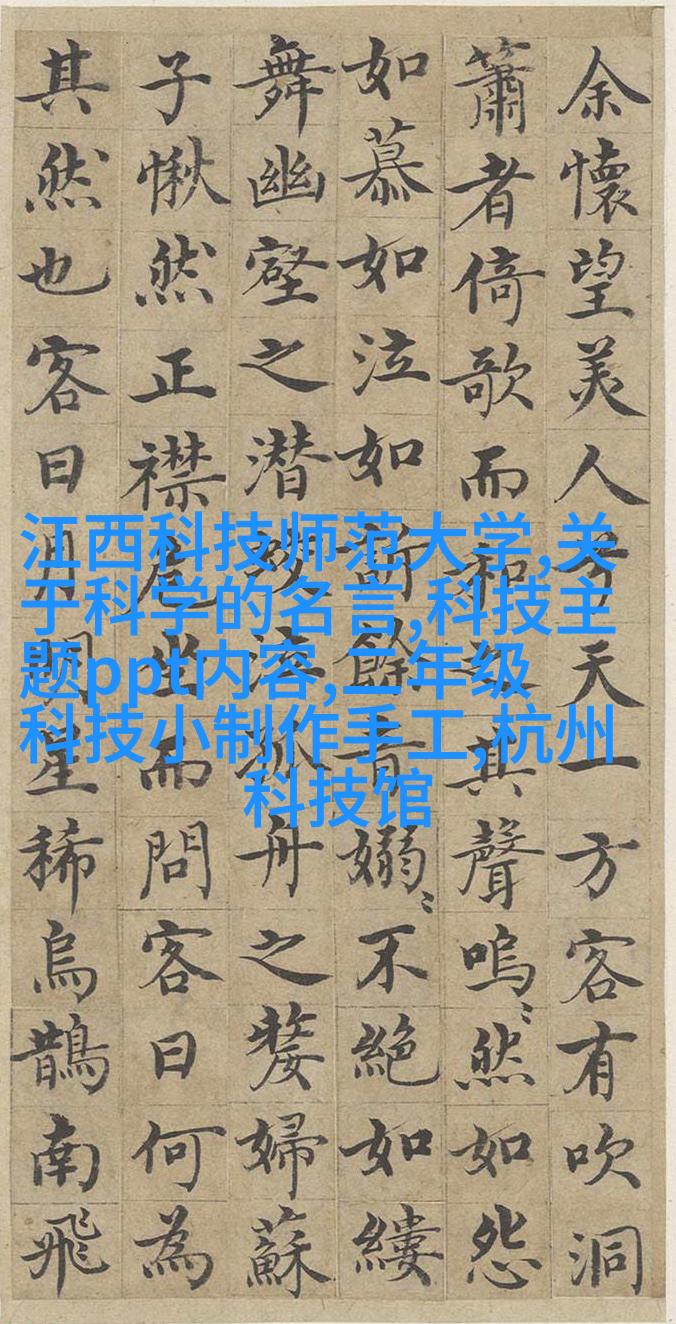 余懷望美人兮天一方客有吹洞
簫者倚歌而和之其聲嗚〻然如怨
如慕如泣如訴餘音嫋〻不絕如縷
舞幽壑之潛蛟泣孤舟之嫠婦蘇
子愀然正襟危坐而問客曰何為
其然也客曰月明星稀烏鵲南飛
江西科技师范大学,关
于科学的名言,科技主
题ppt内容,二年级
科技小制作手工,杭州
科技馆